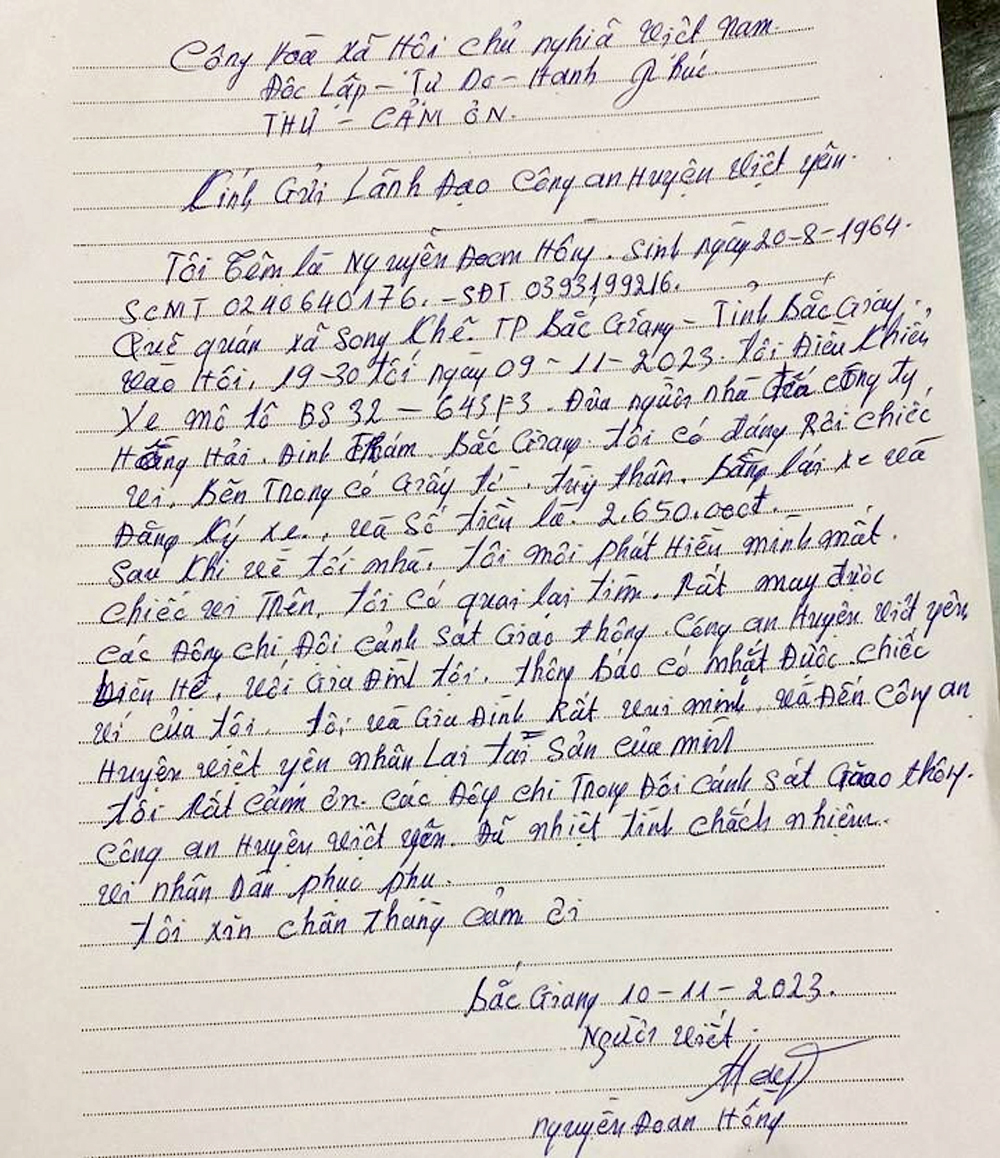 Công hoà xã Hôi chủ nghiã việt nam.
Đôc Lập - Tự Do - Hanh Phúc.
THƯ - CẢM ƠN.
Kính Gửi Lãnh Đạo Công an Huyện Việt yên.
Tôi Têm là Nguyễn Đoan Hồng. Sinh ngày 20-8-1964.
SCMT 0240640176. - SĐT 0393199216.
Quê quán xã Song Khê. TP Bắc Giang - Tỉnh Bắc Giang.
Vào Hôi. 19-30 tối ngày 09-11-2023. Tôi Điều Khiển
Xe mô tô BS 32 - 643F3. Đưa người nhà công ty.
Hồng Hải. Đinh Trám. Bắc Giang. tôi có đáng Rơi chiếc
ví. Bên Trong có Giấy tờ. tùy thân. bằng lái xe và
Đăng Ký xe., và Số tiền là. 2.650.000đ.
Sau Khi về tới nhà. tôi mới phát Hiện mình mất.
chiếc ví Trên. tôi có quai lai tìm. Rất may được
các Đông chí Đôi cảnh sát Giao thông. Công an Huyện Việt yên
Liên Hê. với Gia Đình tôi. thông báo có nhặt Được chiếc
ví của tôi. tôi và Gia Đình Rất vui minh. và Đến Công an
Huyện việt yên nhân Lai tài sản của minh
tôi Rất cảm ơn. các Đông chí Trong Đôi cảnh sát Giao thông.
Công an Huyện việt yên. Đã nhiệt tình chách nhiêm.
vì nhân Dân phuc phu.
tôi xin chân thàng cảm ơi
Bắc Giang 10-11-2023.
Người viết.
Nguyễn Đoan Hồng